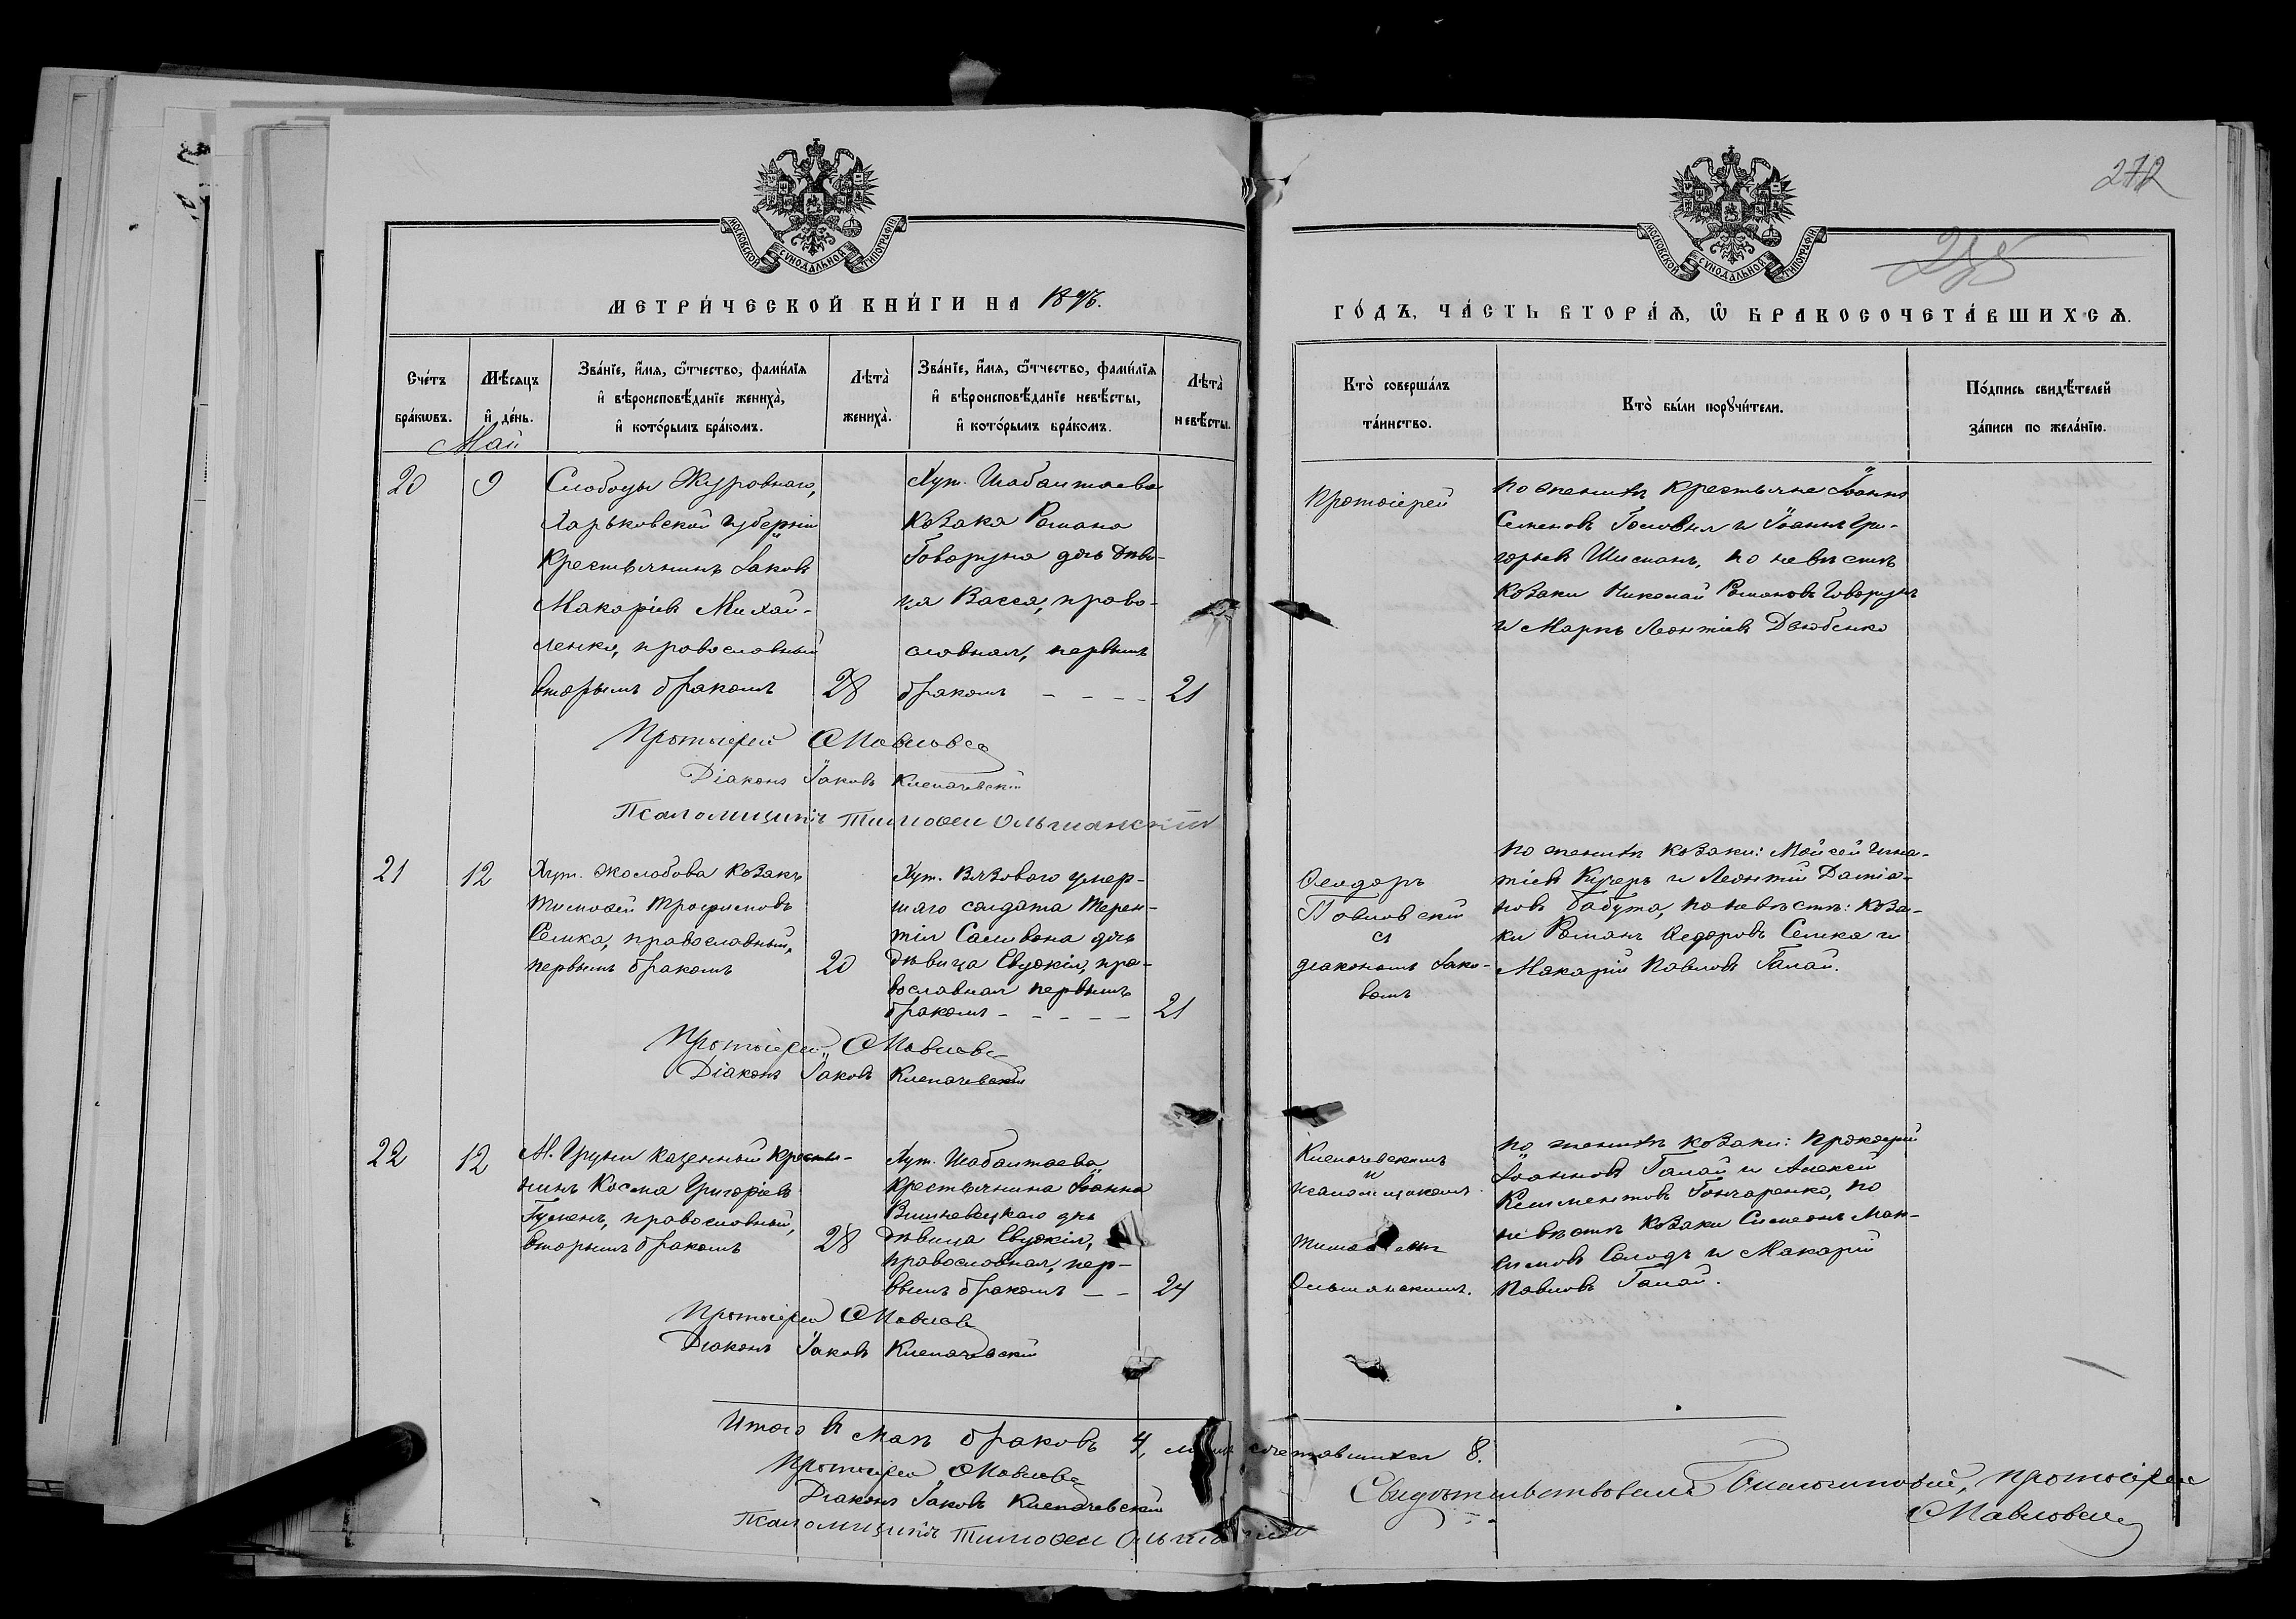 272
МОСКОВСКОЙ СѴНОДАЛЬНОЙ ТИПОГРАФІИ
МОСКОВСКОЙ СѴНОДАЛЬНОЙ ТИПОГРАФІИ
МЕТРИ́ЧЕСКОЙ КНИ́ГИ НА 1896.
ГО́ДЪ, ЧА́СТЬ ВТОРА́Ѧ, Ѽ БРАКОСОЧЕТА́ВШИХСѦ.
Сче́тъ бра́кѡвъ.
Мѣ́сяцъ и҆ де́нь.
Зва́нїе, и҆́мя, ѻ҆́тчество, фами́лїя
и҆ вѣроисповѣ́данїе жениха̀,
и҆ кото́рымъ бра́комъ.
Лѣта̀ жениха̀.
Зва́нїе, и҆́мя, ѻ҆́тчество, фами́лїя
и҆ вѣроисповѣ́данїе невѣ́сты,
и҆ кото́рымъ бра́комъ.
Лѣта̀ невѣ́сты.
Кто̀ соверша́лъ
та́инство.
Кто̀ бы́ли порꙋчи́тели.
По́дпись свидѣ́телей
за́писи по жела́нїю.
Май
20
9
Слободы Журавнаго,
Харьковской губерніи
крестьянинъ Іаковъ
Макаріевъ Михай-
ленко, православный
вторымъ бракомъ
28
Хут. Шабалтаева
козака Романа
Говоруна дочь дѣви-
ца Васса, право-
славная, первымъ
бракомъ - - - -
21
Протоіерей
по женихѣ крестьяне Іоаннъ
Семеновъ Головня и Іоаннъ Гри-
горьевъ Шисманъ, по невѣстѣ
козаки Николай Романовъ Говорунъ
и Маркъ Леонтіевъ Дзюбенко
Протоіерей Ѳ Павловск
Діаконъ Іаковъ Клепачевскій
Псаломщикъ Тимоѳей Ольшанскій
21
12
Хут. Жолобова козакъ
Тимоѳей Трофимовъ
Семка, православный,
первымъ бракомъ
20
Хут. Вязоваго умер-
шаго солдата Терен-
тія Саливона дочь
дѣвица Евдокія, пра-
вославная первымъ
бракомъ - - - - -
21
Ѳеодоръ
Павловскій
съ
діакономъ Іако-
вомъ
по женихѣ козаки: Моѵсей Игна-
тіевъ Кучеръ и Леонтій Даміа-
новъ Бабута, по невѣстѣ: коза-
ки Романъ Ѳедоровъ Семка и
Макарій Павловъ Галай.
Протоіерей Ѳ Павловс
Діаконъ Іаковъ Клепачевскій
22
12
М. Груни казенный крестья-
нинъ Косма Григоріевъ
православный,
вторымъ бракомъ
28
Хут. Шабалтаева
крестьянина Іоанна
Вишневецкаго дочь
дѣвица Евдокія,
православная, пер-
вымъ бракомъ - -
24
Клепачевскимъ
и
псаломщикомъ
Ольшанскимъ.
по женихѣ козаки: Прокопій
Іоанновъ Галай и Алексей
Климентовъ Гончаренко, по
невѣстѣ козаки Симеонъ Мак-
симовъ Солодъ и Макарій
Павловъ Галай.
Протоіерей Ѳ Павловс
Діаконъ Іаковъ Клепачевскій
Итого въ маѣ браковъ 4, сочетавшихся 8.
Протоіерей Ѳ Павловс
Діаконъ Іаковъ Клепачевскій
Псаломщикъ Тимоѳей Ольшанскій
Свидѣтельствовалъ Благочинный, протоіерей
Ѳ Павловск